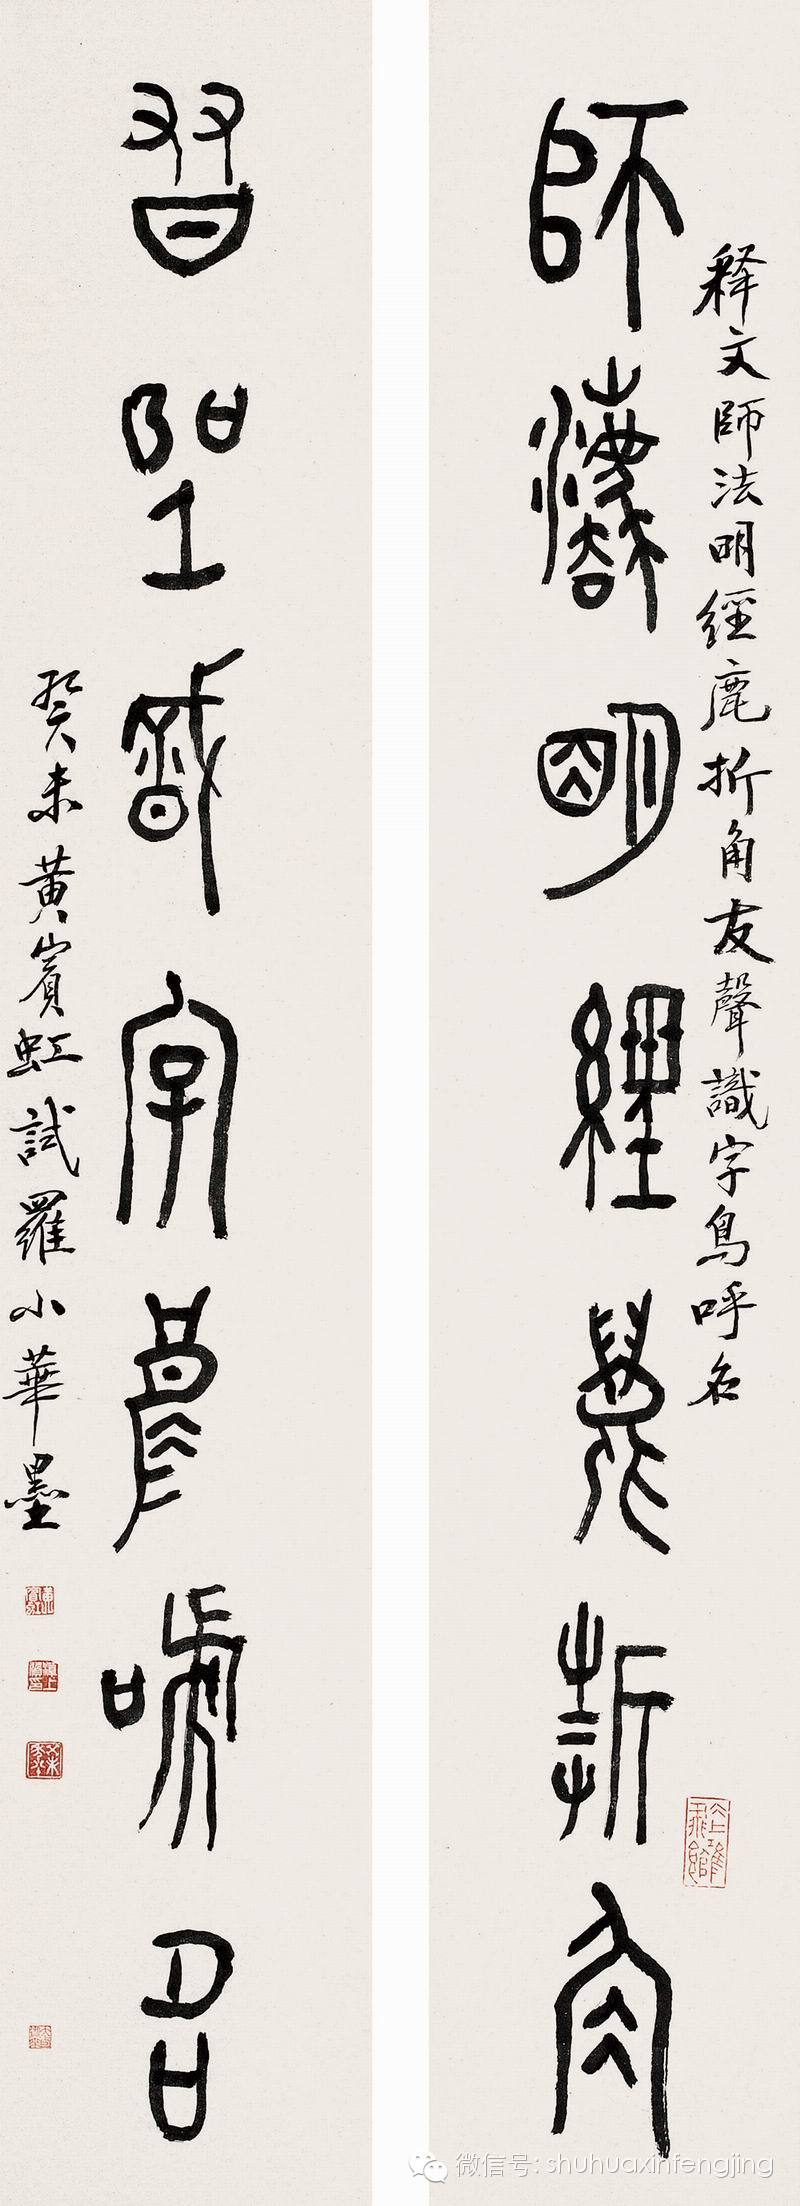 师灋明經麤折角
释文師法明經鹿折角友聲識字鳥呼名
習𦔻戠字鳥嘑名
癸未黄賓虹試羅小華墨
微信号: shuhuaxinfengjing